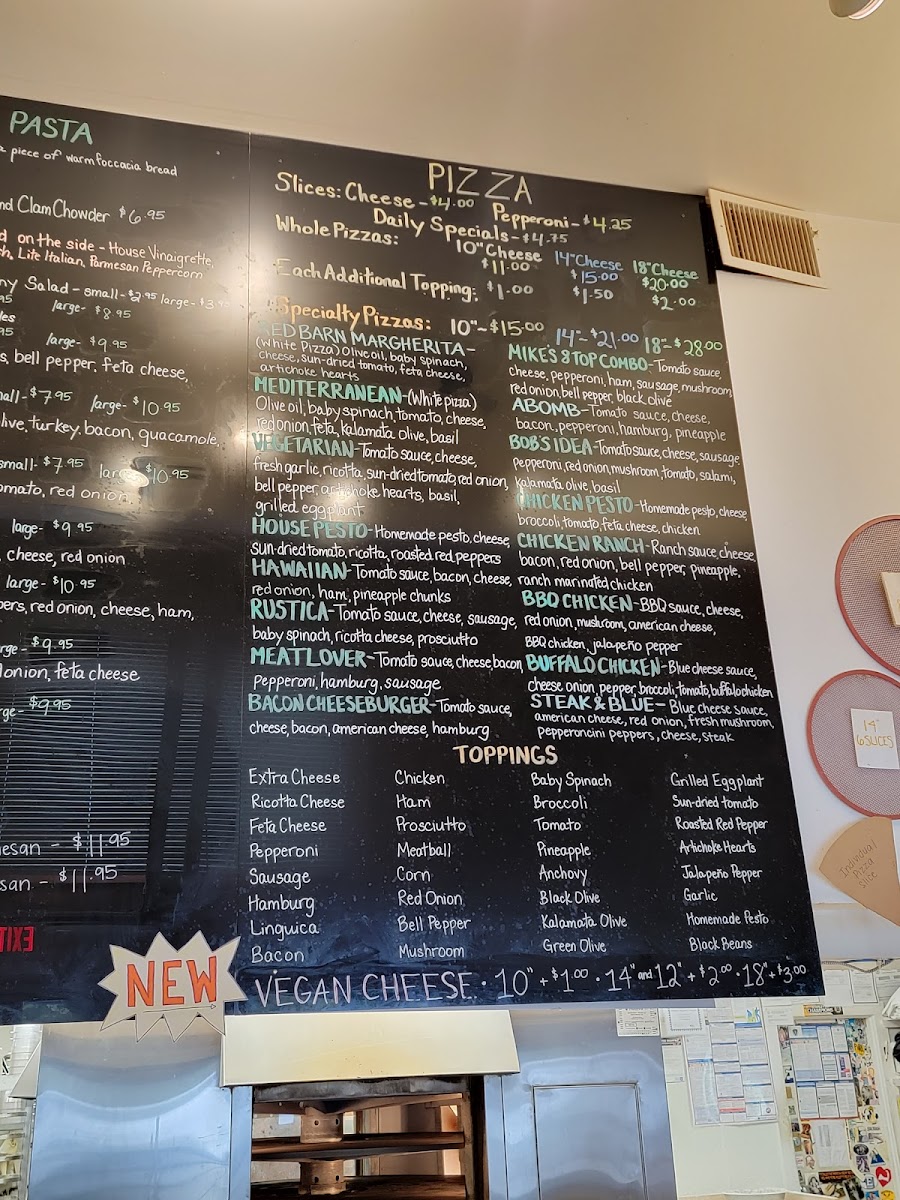 PASTA
piece of warm foccacia bread
Clam Chowder $6.95
on the side - House Vinaigrette,
Lite Italian, Parmesan Peppercorn
Salad - small - $2.95 large - $3.
large - $8.95
large - $9.95
bell pepper, feta cheese,
$7.95 large - $10.95
turkey, bacon, guacamole,
small - $7.95 $10.95
red onion,
large - $9.95
cheese, red onion
large - $10.95
red onion, cheese, ham,
$9.95
onion, feta cheese
$9.95
$11.95
$11.95
EXIT
NEW
PIZZA
Slices: Cheese - $4.00 Pepperoni - $4.25
Daily Specials - $4.75
Whole Pizzas: 10" Cheese 14" Cheese 18" Cheese
$11.00 $15.00 $20.00
Each Additional Topping: $1.00 $1.50 $2.00
Specialty Pizzas: 10" - $15.00 14" - $21.00 18" - $28.00
RED BARN MARGHERITA -
(White Pizza) Olive oil, baby spinach,
cheese, sun-dried tomato, feta cheese,
artichoke hearts
MEDITERRANEAN - (White pizza)
Olive oil, baby spinach, tomato, cheese,
red onion, feta, kalamata olive, basil
VEGETARIAN - Tomato sauce, cheese,
fresh garlic, ricotta, sun-dried tomato, red onion,
bell pepper, artichoke hearts, basil,
grilled eggplant
HOUSE PESTO - Homemade pesto, cheese,
sun-dried tomato, ricotta, roasted red peppers
HAWAIIAN - Tomato sauce, bacon, cheese,
red onion, ham, pineapple chunks
RUSTICA - Tomato sauce, cheese, sausage,
baby spinach, ricotta cheese, prosciutto
MEATLOVER - Tomato sauce, cheese, bacon,
Pepperoni, hamburg, sausage
BACON CHEESEBURGER - Tomato sauce,
cheese, bacon, american cheese, hamburg
MIKE'S 8 TOP COMBO - Tomato sauce,
cheese, pepperoni, ham, sausage, mushroom,
red onion, bell pepper, black olive
ABOMB - Tomato sauce, cheese,
bacon, pepperoni, hamburg, pineapple
BOB'S IDEA - Tomato sauce, cheese, sausage,
Pepperoni, red onion, mushroom, tomato, salami,
kalamata olive, basil
CHICKEN PESTO - Homemade pesto, cheese,
broccoli, tomato, feta cheese, chicken
CHICKEN RANCH - Ranch sauce, cheese,
bacon, red onion, bell pepper, pineapple,
ranch marinated chicken
BBQ CHICKEN - BBQ sauce, cheese,
red onion, mushroom, american cheese,
BBQ chicken, jalapeño pepper
BUFFALO CHICKEN - Blue cheese sauce,
cheese, onion, pepper, broccoli, tomato, buffalo chicken
STEAK & BLUE - Blue cheese sauce,
american cheese, red onion, fresh mushroom,
pepperoncini peppers, cheese, steak
TOPPINGS
Extra Cheese Chicken Baby Spinach Grilled Eggplant
Ricotta Cheese Ham Broccoli Sun-dried tomato
Feta Cheese Prosciutto Tomato Roasted Red Pepper
Pepperoni Meatball Pineapple Artichoke Hearts
Sausage Corn Anchovy Jalapeño Pepper
Hamburg Red Onion Black Olive Garlic
Linguica Bell Pepper Kalamata Olive Homemade Pesto
Bacon Mushroom Green Olive Black Beans
VEGAN CHEESE • 10" + $1.00 • 14" and 12" + $2.00 • 18" + $3.00
14"
6 SLICES
Individual
Pizza
Slice